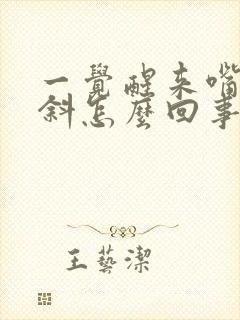 一覺醒来嘴
斜怎麼回事
王藝潔